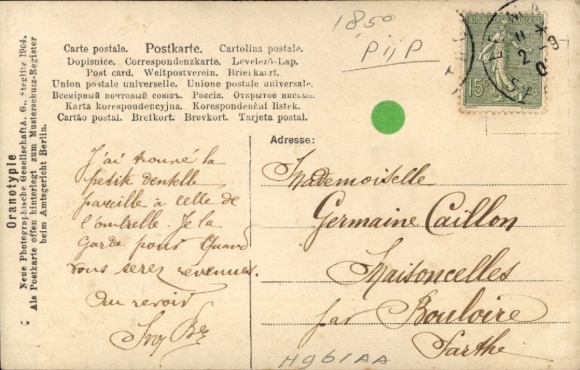 1850
P ij P
Carte postale. Postkarte. Cartolina postale.
Dopisnice. Correspondenzkarte. Levelező-Lap.
Post card. Weltpostverein. Briefkaart.
Union postale universelle. Unione postale universale.
Всемірный почтовый союзъ. Россія. Открытое письмо.
Karta korespondencyjna. Korespondenční listek.
Cartão postal. Breikort. Brevkort. Tarjeta postal.
Oranotypie
Neue Photographische Gesellschaft A. G., Steglitz 1904.
Als Postkarte offen hinterlegt zum Musterschutz-Register
beim Amtsgericht Berlin.
15
J'ai trouvé la
petite dentelle
pareille à celle de
l'ombrelle. Je la
garde pour quand
vous serez revenues.
Au revoir
Adresse:
Mademoiselle
Germaine Caillon
Maisoncelles
par Bouloire
Sarthe
H961AA